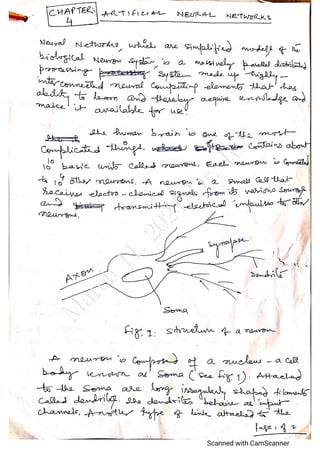 CHAPTER: 4 ARTIFICIAL NEURAL NETWORKS
Neural Networks, which are simplified models of the
biological Neuron System, is a massively parallel distributed
processing system made up highly-
interconnected neural computing elements that has
ability to learn and thereby acquire knowledge and
make it available for use.
The human brain is one of the most
complicated things. Contains about
10^10 basic units called neurons. Each neuron is connected
to 10^4 other neurons. A neuron is a small cell that
receives electro-chemical signals from its various sources
and transmitting electrical impulses to other
neurons.
Synapse
Axon
Dendrite
Soma
Fig. 1: Structure of a neuron
A neuron is composed of a nucleus - a cell
body known as Soma (see fig 1). Attached
to the Soma are long irregularly shaped filaments
called dendrites. The dendrites behave as input
channels. Another type of link attached to the
Page 1 of 2
Scanned with CamScanner